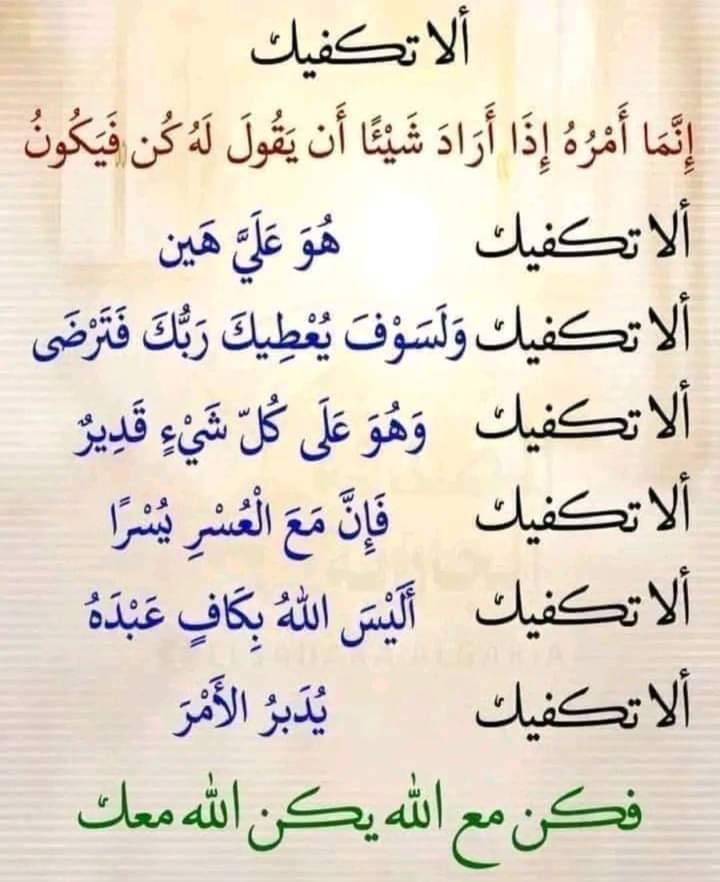 ألا تكفيك
إِنَّمَا أَمْرُهُ إِذَا أَرَادَ شَيْئًا أَن يَقُولَ لَهُ كُن فَيَكُونُ
ألا تكفيك هُوَ عَلَيَّ هَين
ألا تكفيك وَلَسَوْفَ يُعْطِيكَ رَبُّكَ فَتَرْضَى
ألا تكفيك وَهُوَ عَلَى كُلّ شَيْءٍ قَدِيرٌ
ألا تكفيك فَإِنَّ مَعَ الْعُسْرِ يُسْرًا
ألا تكفيك أَلَيْسَ اللهُ بِكَافٍ عَبْدَهُ
ألا تكفيك يُدَبرُ الأَمْرَ
فكن مع الله يكن الله معك